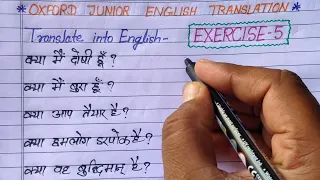 *OXFORD JUNIOR ENGLISH TRANSLATION*
Translate into English-
EXERCISE-5
क्या मैं दोषी हूँ?
क्या मैं बुरा हूँ?
क्या आप तैयार है?
क्या हमलोग डरपोक है?
क्या वह बुद्धिमान् है?